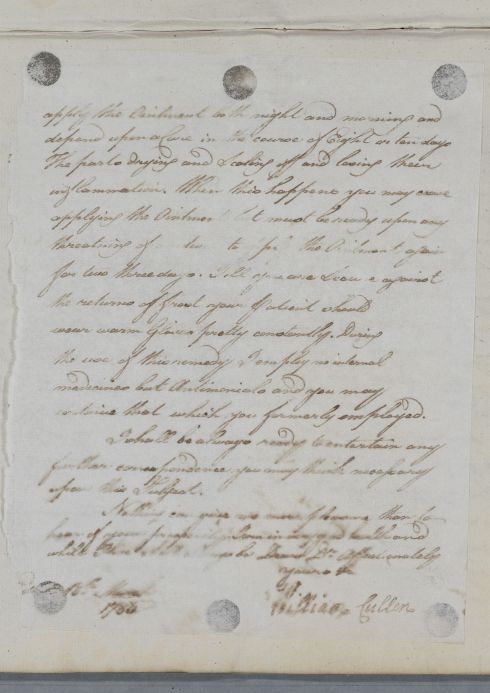 apply the Ointment both night and morning and
depend upon a Cure in the course of Eight or ten days
The parts Drying and Scaling off and losing their
inflammation. When this happens you may cease
applying the Ointment but must be ready upon any
threatning of to the Ointment again
for two three days. Till against
the returns of frost your Patient should
wear warm Gloves pretty constantly. During
the use of this remedy I employ no internal
medicines but Antimonials and you may
that which you formerly employed.
I shall be always ready to entertain any
further correspondence you may think necessary
upon this Subject.
Nothing can give me more pleasure than to
hear of your prosperity and
Dear Dr. Affectionately
yours &c
March
William Cullen